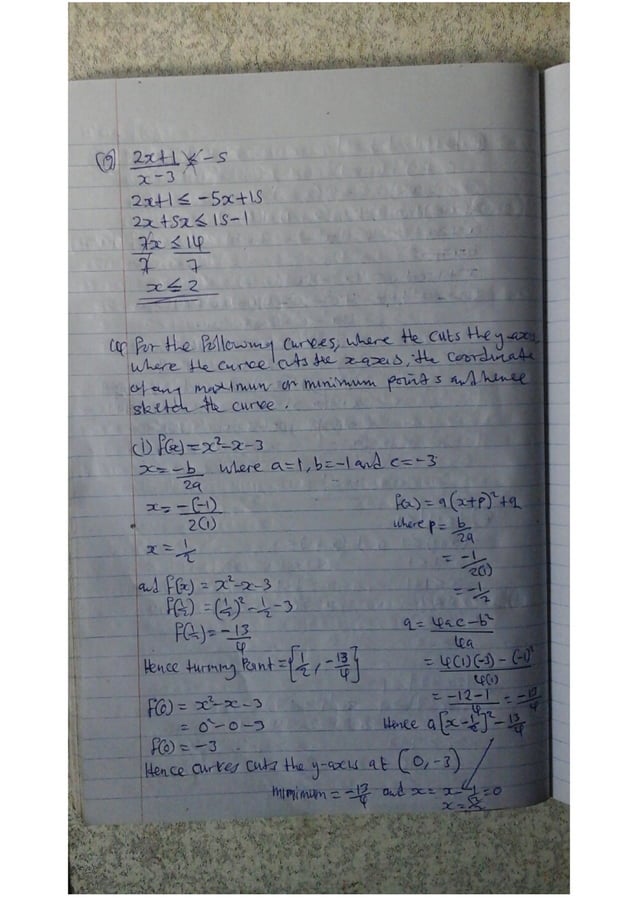 (19) 2x+1 ≤ -5
x-3
2x+1 ≤ -5x+15
2x+5x ≤ 15-1
7x ≤ 14
7 7
x ≤ 2
For the following curves, where the cuts the y-axis
where the curve cuts the x-axis, the coordinate
of any maximum or minimum points and hence
sketch the curve.
(i) f(x) = x²-x-3
x = -b/2a where a=1, b=-1 and c=-3
x = -(-1)/2(1)
x = 1/2
and f(x) = x²-x-3
f(1/2) = (1/2)² - 1/2 - 3
f(1/2) = -13/4
Hence turning Point = {1/2, -13/4}
f(0) = x²-x-3
= 0²-0-3
f(0) = -3.
f(x) = a(x+p)²+q
where p = b/2a
= -1/2(1)
= -1/2
q = 4ac-b²/4a
= 4(1)(-3) - (-1)²/4(1)
= -12-1/4 = -13/4
Hence a[x-1/2]² - 13/4
Hence curves cuts the y-axis at (0, -3)
minimum = -13/4 and x = x-1/2=0